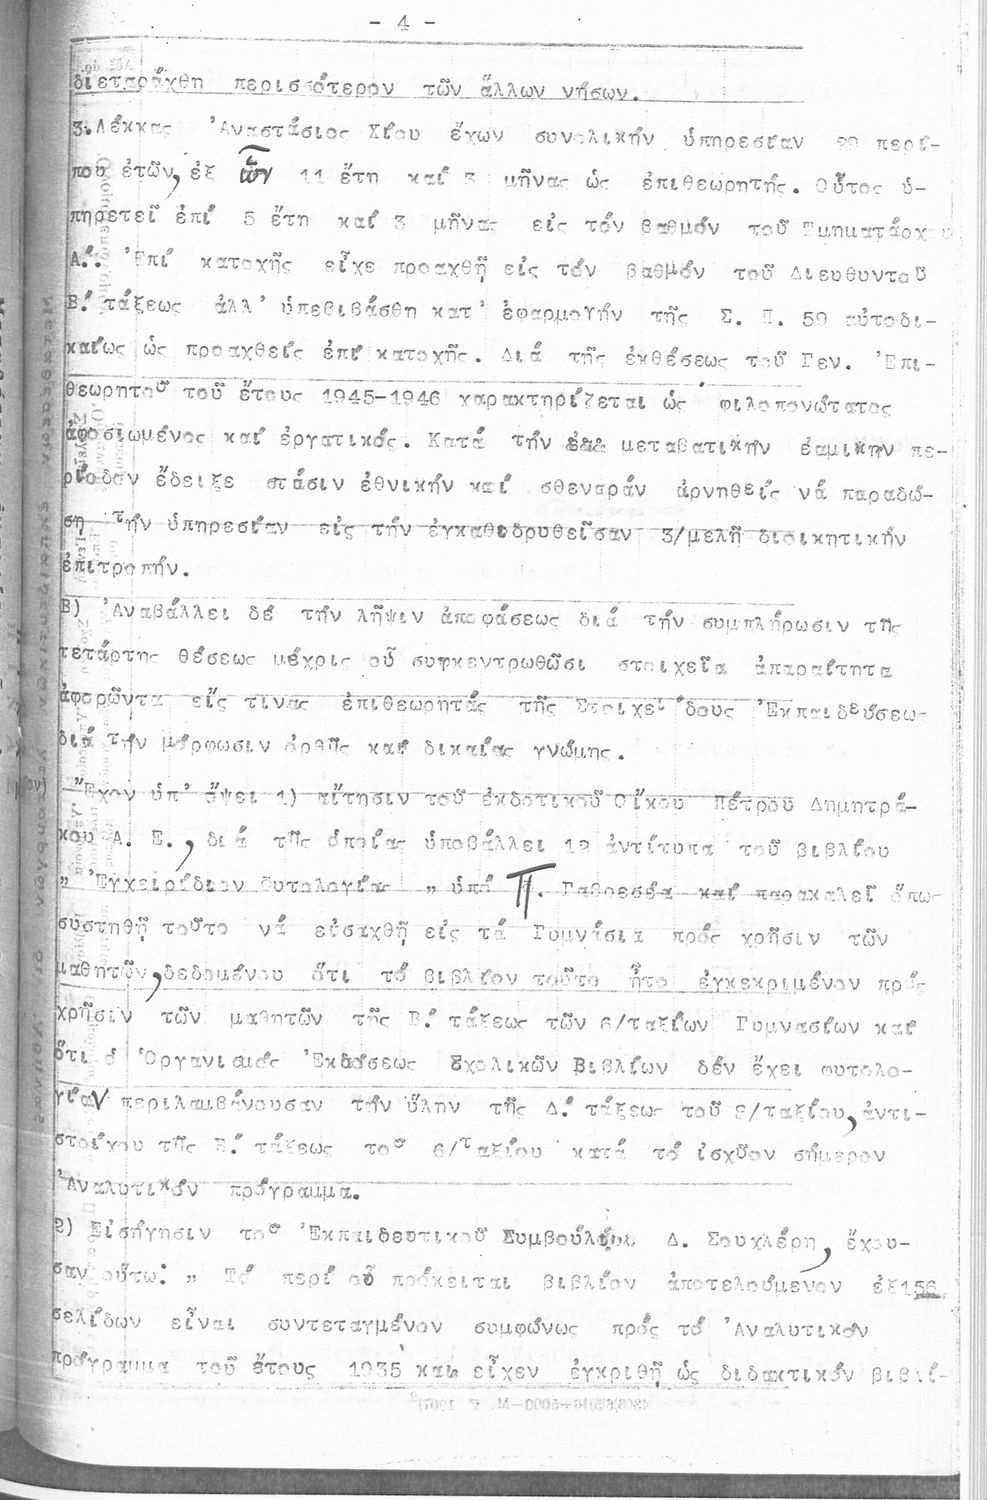 - 4 -
διεταράχθη περισσότερον τῶν ἄλλων νήσων.
3.Λέκκας Ἀναστάσιος Χίου ἔχων συνολικήν ὑπηρεσίαν 29 περί-
που ἐτῶν, ἐξ ὧν 11 ἔτη καί 3 μῆνας ὡς ἐπιθεωρητής. Οὗτος ὑ-
πηρετεῖ ἐπί 5 ἔτη καί 3 μῆνας εἰς τόν βαθμόν τοῦ Τμηματάρχου
Α΄. Ἐπί κατοχῆς εἶχε προαχθῆ εἰς τόν βαθμόν τοῦ Διευθυντοῦ
Β΄. τάξεως ἀλλ' ὑπεβιβάσθη κατ' ἐφαρμογήν τῆς Σ. Π. 59 αὐτοδι-
καίως ὡς προαχθείς ἐπί κατοχῆς. Διά τῆς ἐκθέσεως τοῦ Γεν. Ἐπι-
θεωρητοῦ τοῦ ἔτους 1945-1946 χαρακτηρίζεται ὡς φιλοπονώτατος
ἀφοσιωμένος καί ἐργατικός. Κατά τήν μεταβατικήν ἐαμικήν πε-
ρίοδον ἔδειξε στάσιν ἐθνικήν καί σθεναράν ἀρνηθείς νά παραδώ-
ση τήν ὑπηρεσίαν εἰς τήν ἐγκαθιδρυθεῖσαν 3/μελῆ διοικητικήν
ἐπιτροπήν.
Β) Ἀναβάλλει δέ τήν λῆψιν ἀποφάσεως διά τήν συμπλήρωσιν τῆς
τετάρτης θέσεως μέχρις οὗ συγκεντρωθῶσι στοιχεῖα ἀπαραίτητα
ἀφορῶντα εἴς τινας ἐπιθεωρητάς τῆς Στοιχειώδους Ἐκπαιδεύσεως
διά τήν μόρφωσιν ὀρθῆς καί δικαίας γνώμης.
Ἔχον ὑπ' ὄψει 1) αἴτησιν τοῦ ἐκδοτικοῦ Οἴκου Πέτρου Δημητρά-
κου Α. Ε., διά τῆς ὁποίας ὑποβάλλει 12 ἀντίτυπα τοῦ βιβλίου
" Ἐγχειρίδιον Φυτολογίας " ὑπό Π. Γαβρεσέα καί παρακαλεῖ ὅπως
συστηθῆ τοῦτο νά εἰσαχθῆ εἰς τά Γυμνάσια πρός χρῆσιν τῶν
μαθητῶν, δεδομένου ὅτι τό βιβλίον τοῦτο ἦτο ἐγκεκριμένον πρός
χρῆσιν τῶν μαθητῶν τῆς Β΄. τάξεως τῶν 6/ταξίων Γυμνασίων καί
ὅτι ὁ Ὀργανισμός Ἐκδόσεως Σχολικῶν Βιβλίων δέν ἔχει φυτολο-
γίαν περιλαμβάνουσαν τήν ὕλην τῆς Δ΄. τάξεως τοῦ 8/ταξίου, ἀντι-
στοίχου τῆς Β΄. τάξεως τοῦ 6/ταξίου κατά τό ἰσχῦον σήμερον
Ἀναλυτικόν πρόγραμμα.
2) Εἰσήγησιν τοῦ Ἐκπαιδευτικοῦ Συμβούλου Δ. Σουχλέρη, ἔχου-
σαν οὕτω: " Τό περί οὗ πρόκειται βιβλίον ἀποτελούμενον ἐξ 156
σελίδων εἶναι συντεταγμένον συμφώνως πρός τό Ἀναλυτικόν
πρόγραμμα τοῦ ἔτους 1935 καί εἶχεν ἐγκριθῆ ὡς διδακτικόν βιβλί-